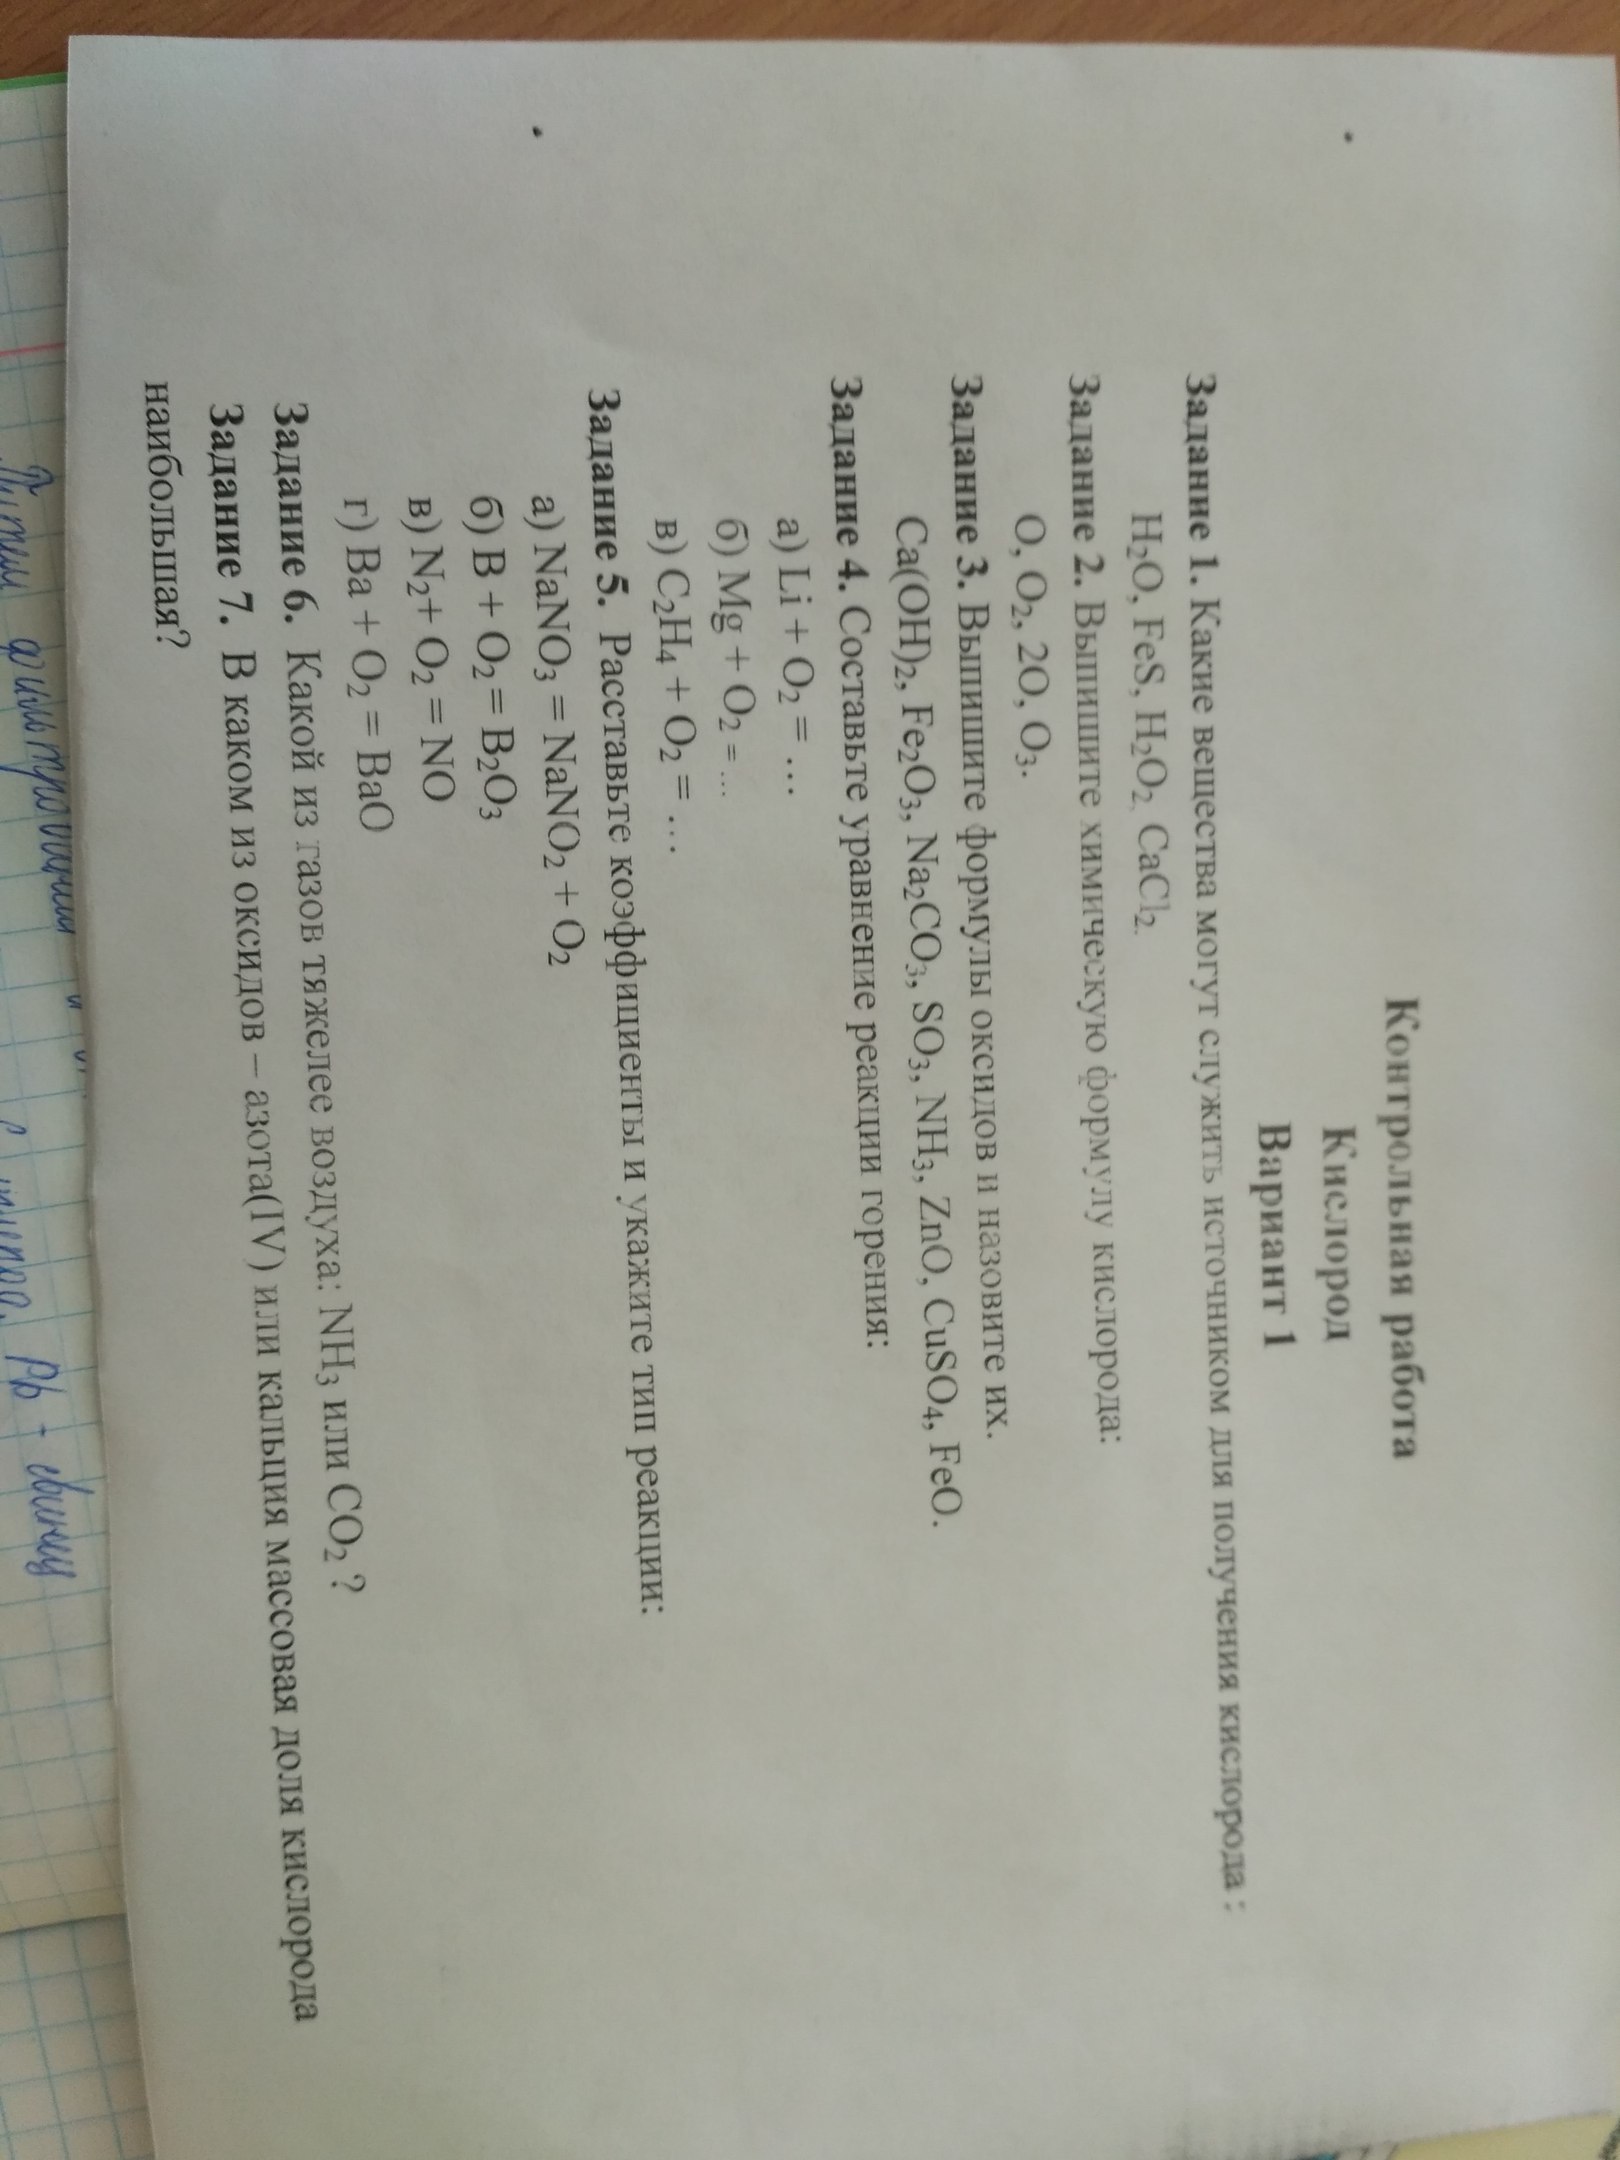 Контрольная работа
Кислород
Вариант 1
Задание 1. Какие вещества могут служить источником для получения кислорода :
H₂O, FeS, H₂O₂, CaCl₂.
Задание 2. Выпишите химическую формулу кислорода:
O, O₂, 2O, O₃.
Задание 3. Выпишите формулы оксидов и назовите их.
Ca(OH)₂, Fe₂O₃, Na₂CO₃, SO₃, NH₃, ZnO, CuSO₄, FeO.
Задание 4. Составьте уравнение реакции горения:
а) Li + O₂ = …
б) Mg + O₂ = …
в) C₂H₄ + O₂ = …
Задание 5. Расставьте коэффициенты и укажите тип реакции:
а) NaNO₃ = NaNO₂ + O₂
б) B + O₂ = B₂O₃
в) N₂ + O₂ = NO
г) Ba + O₂ = BaO
Задание 6. Какой из газов тяжелее воздуха: NH₃ или CO₂ ?
Задание 7. В каком из оксидов – азота(IV) или кальция массовая доля кислорода
наибольшая?
фильтрации
Pb - свинец